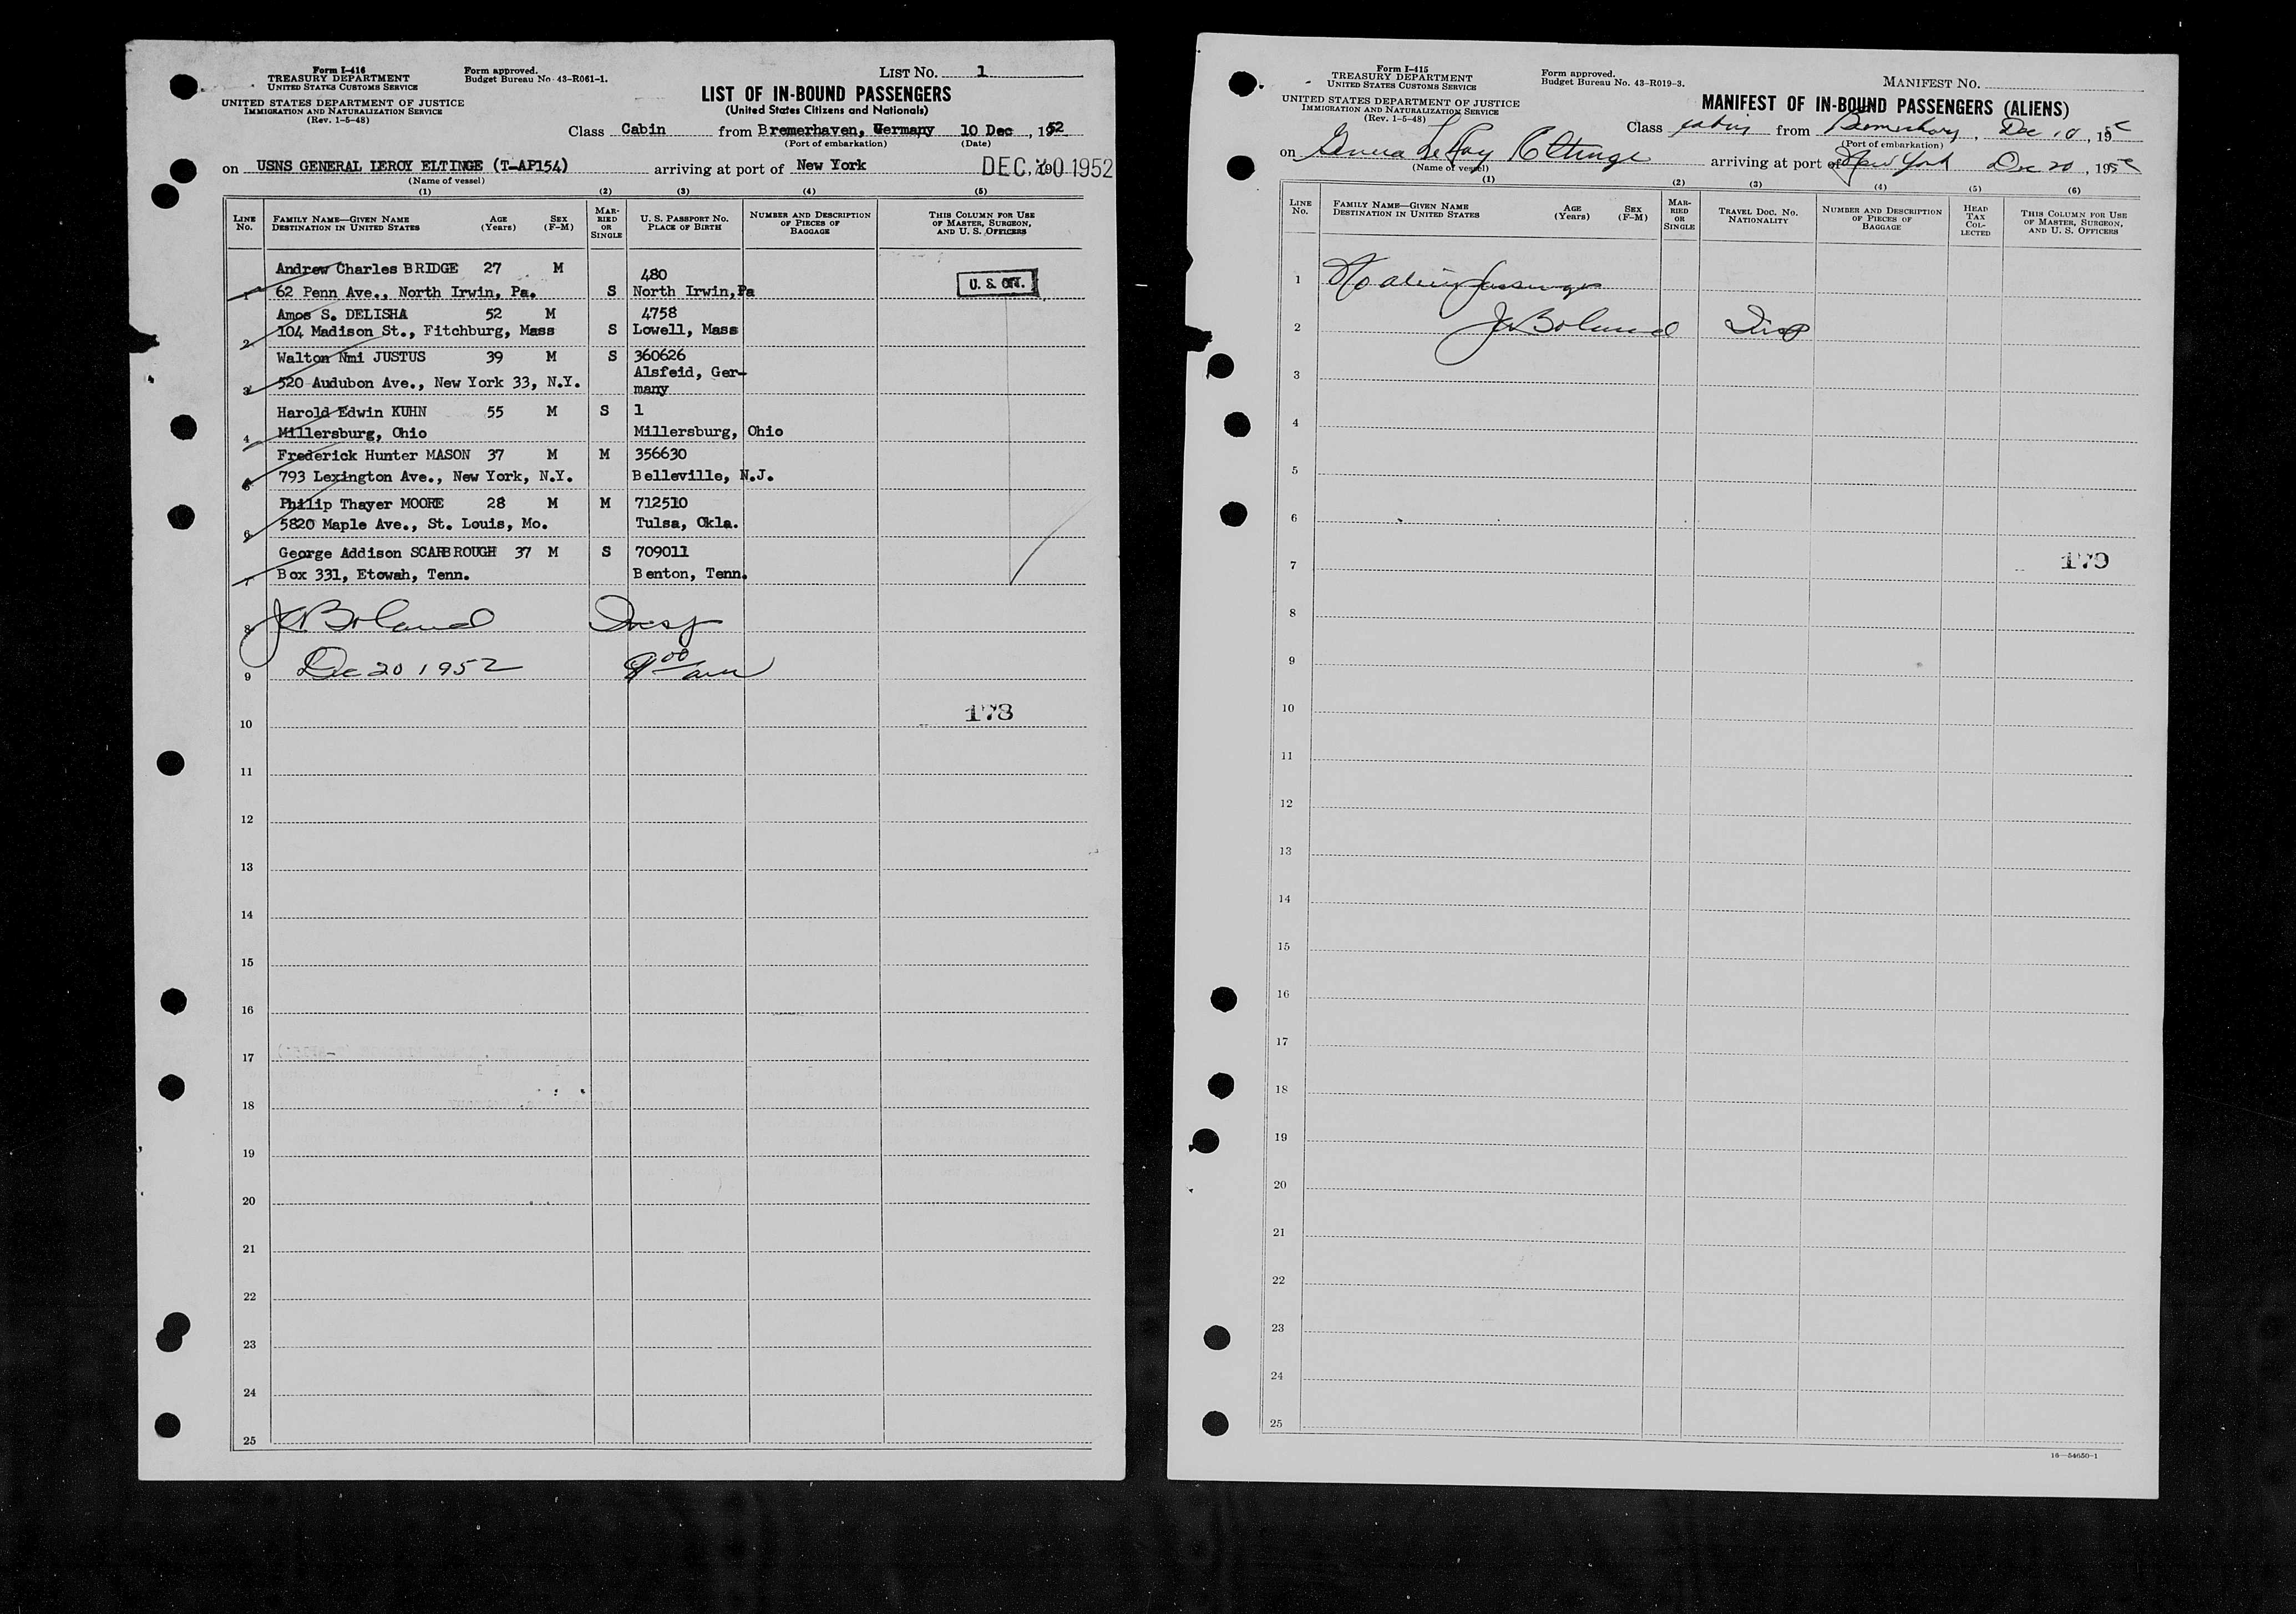 Form I-416
TREASURY DEPARTMENT
UNITED STATES CUSTOMS SERVICE
UNITED STATES DEPARTMENT OF JUSTICE
IMMIGRATION AND NATURALIZATION SERVICE
(Rev. 1-5-48)
Form approved.
Budget Bureau No. 43-R061-1.
LIST No. 1
LIST OF IN-BOUND PASSENGERS
(United States Citizens and Nationals)
Class Cabin from Bremerhaven, Germany 10 Dec, 1952
(Port of embarkation) (Date)
on USNS GENERAL LEROY ELTINGE (T-AP154) arriving at port of New York DEC. 20 1952
(Name of vessel)
(1) (2) (3) (4) (5)
LINE No. FAMILY NAME—GIVEN NAME DESTINATION IN UNITED STATES AGE (Years) SEX (F-M) MARRIED OR SINGLE U. S. PASSPORT No. PLACE OF BIRTH NUMBER AND DESCRIPTION OF PIECES OF BAGGAGE THIS COLUMN FOR USE OF MASTER, SURGEON, AND U. S. OFFICERS
Andrew Charles BRIDGE 27 M 480
1 62 Penn Ave., North Irwin, Pa. S North Irwin, Pa U. S. CIT.
Amos S. DELISHA 52 M 4758
104 Madison St., Fitchburg, Mass S Lowell, Mass
2
Walton Nmi JUSTUS 39 M S 360626
Alsfeid, Ger-
3 520 Audubon Ave., New York 33, N.Y. many
Harold Edwin KUHN 55 M S 1
4 Millersburg, Ohio Millersburg, Ohio
Frederick Hunter MASON 37 M M 356630
5 793 Lexington Ave., New York, N.Y. Belleville, N.J.
Philip Thayer MOORE 28 M M 712510
6 5820 Maple Ave., St. Louis, Mo. Tulsa, Okla.
George Addison SCARBROUGH 37 M S 709011
7 Box 331, Etowah, Tenn. Benton, Tenn.
8 J Boland Insp
9 Dec 20 1952 9 00 am
10 178
11
12
13
14
15
16
17
18
19
20
21
22
23
24
25
Form I-415
TREASURY DEPARTMENT
UNITED STATES CUSTOMS SERVICE
UNITED STATES DEPARTMENT OF JUSTICE
IMMIGRATION AND NATURALIZATION SERVICE
(Rev. 1-5-48)
Form approved.
Budget Bureau No. 43-R019-3.
MANIFEST No.
MANIFEST OF IN-BOUND PASSENGERS (ALIENS)
Class cabin from Bremerhaven, Dec 10, 195
(Port of embarkation)
on General LeRoy Eltinge arriving at port of New York Dec 20, 195
(Name of vessel)
(1) (2) (3) (4) (5) (6)
LINE No. FAMILY NAME—GIVEN NAME DESTINATION IN UNITED STATES AGE (Years) SEX (F-M) MARRIED OR SINGLE TRAVEL DOC. No. NATIONALITY NUMBER AND DESCRIPTION OF PIECES OF BAGGAGE HEAD TAX COLLECTED THIS COLUMN FOR USE OF MASTER, SURGEON, AND U. S. OFFICERS
1 No alien passengers
2 J Boland Insp
3
4
5
6
7 179
8
9
10
11
12
13
14
15
16
17
18
19
20
21
22
23
24
25
16—54650-1